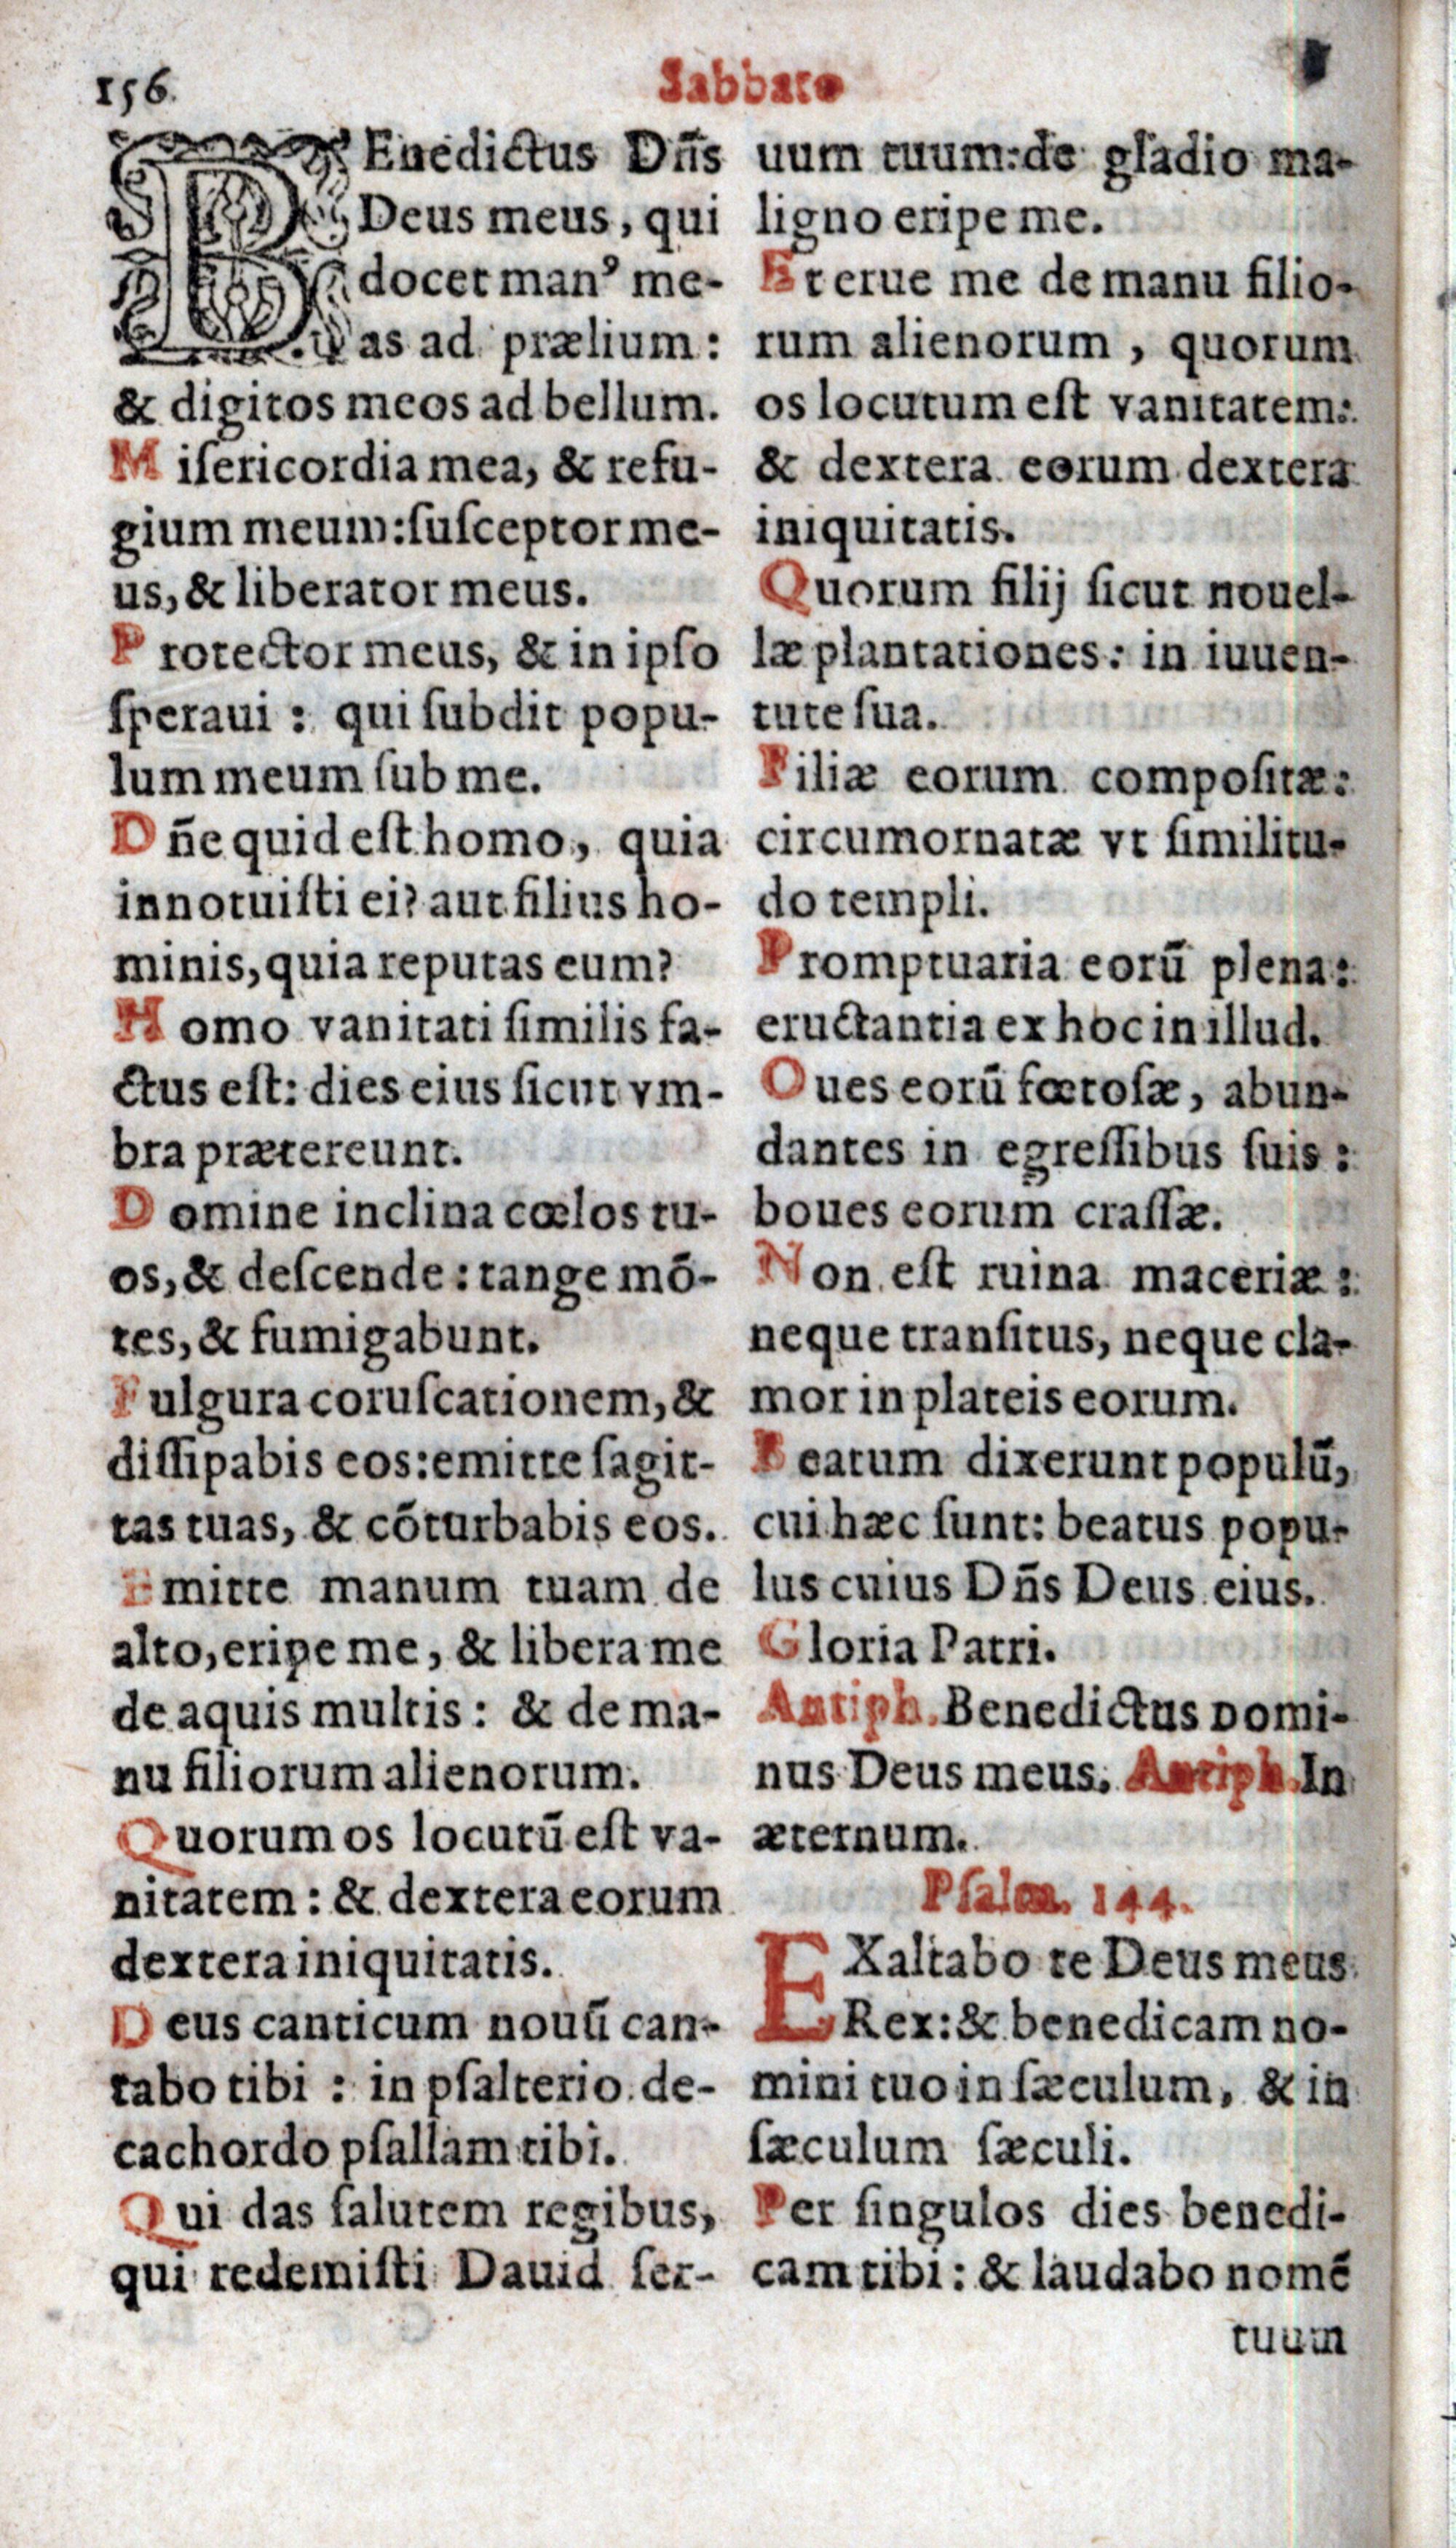 156.
Sabbato
BEnedictus Dñs
Deus meus, qui
docet manꝰ me-
as ad prælium:
& digitos meos ad bellum.
Miſericordia mea, & refu-
gium meum: ſuſceptor me-
us, & liberator meus.
Protector meus, & in ipſo
ſperaui: qui ſubdit popu-
lum meum ſub me.
Dñe quid eſt homo, quia
innotuiſti ei? aut filius ho-
minis, quia reputas eum?
Homo vanitati ſimilis fa-
ctus eſt: dies eius ſicut vm-
bra prætereunt.
Domine inclina cœlos tu-
os, & deſcende: tange mō-
tes, & fumigabunt.
Fulgura coruſcationem, &
diſſipabis eos: emitte ſagit-
tas tuas, & cōturbabis eos.
Emitte manum tuam de
alto, eripe me, & libera me
de aquis multis: & de ma-
nu filiorum alienorum.
Quorum os locutū eſt va-
nitatem: & dextera eorum
dextera iniquitatis.
Deus canticum nouū can-
tabo tibi: in pſalterio de-
cachordo pſallam tibi.
Qui das ſalutem regibus,
qui redemiſti Dauid ſer-
uum tuum: de gladio ma-
ligno eripe me.
Et erue me de manu filio-
rum alienorum, quorum
os locutum eſt vanitatem:
& dextera eorum dextera
iniquitatis.
Quorum filij ſicut nouel-
læ plantationes: in iuuen-
tute ſua.
Filiæ eorum compoſitæ:
circumornatæ vt ſimilitu-
do templi.
Promptuaria eorū plena:
eructantia ex hoc in illud.
Oues eorū fœtoſæ, abun-
dantes in egreſſibus ſuis:
boues eorum craſſæ.
Non eſt ruina maceriæ:
neque tranſitus, neque cla-
mor in plateis eorum.
Beatum dixerunt populū,
cui hæc ſunt: beatus popu-
lus cuius Dñs Deus eius.
Gloria Patri.
Antiph. Benedictus Domi-
nus Deus meus. Antiph. In
æternum.
Pſalm. 144.
EXaltabo te Deus meus
Rex: & benedicam no-
mini tuo in ſæculum, & in
ſæculum ſæculi.
Per ſingulos dies benedi-
cam tibi: & laudabo nomē
tuum